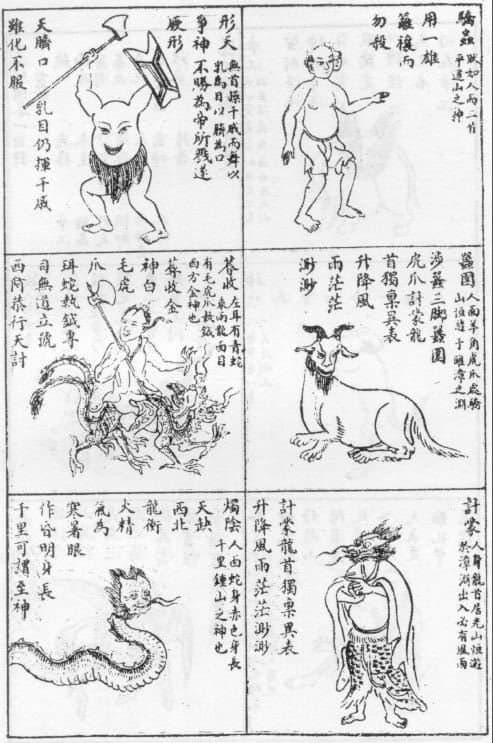 驕蟲 狀如人而二首
平逢山之神
用雄
雞禳而
勿殺
形天 無首操干戚而舞以
乳為目以臍為口
爭神不勝為帝所戮遂
厥形
天臍口 乳目仍揮干戚
雖化不服
𧕦圍 人面羊角虎爪處驕
山恒遊于雎漳之淵
涉𧕦三脚𧕦圍
虎爪計蒙龍
首獨稟異表
升降風
雨茫茫
渺渺
蓐收 左耳有青蛇
乘兩龍面目
有毛虎爪執鉞
西方金神也
蓐收金
神白
毛虎
爪
珥蛇執鉞專
司無道立號
西阿恭行天討
計蒙 人身龍首居光山恒遊
於漳淵出入必有風雨
計蒙龍首獨稟異表
升降風雨茫茫渺渺
燭陰 人面蛇身赤色身長
千里鍾山之神也
天缺
西北
龍銜
火精
氣為
寒暑眼
作昏明身長
千里可謂至神